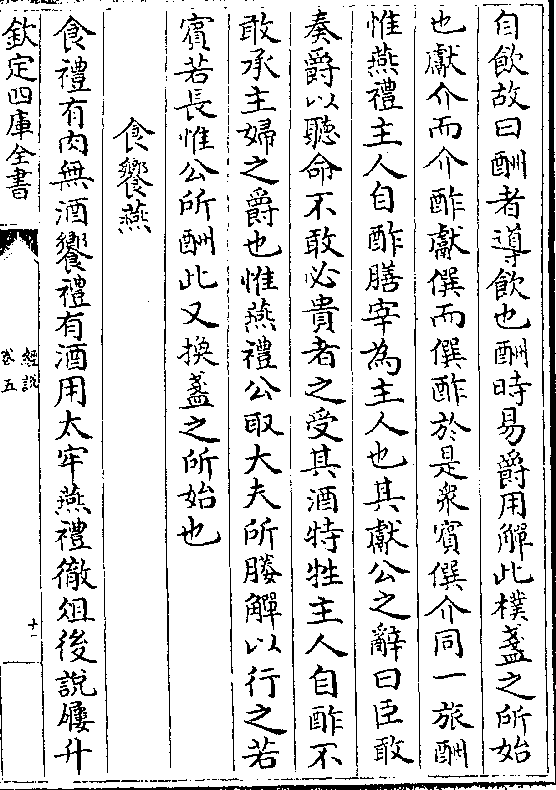 自飲故曰酬者導飲也酬時易爵用觶此樸盞之所始
也獻介而介酢獻僎而僎酢於是衆賓僎介同一旅酬
惟燕禮主人自酢膳宰為主人也其獻公之辭曰臣敢
奏爵以聽命不敢必貴者之受其酒特牲主人自酢不
敢承主婦之爵也惟燕禮公取大夫所媵觶以行之若
賓若長惟公所酬此又換盞之所始也
食饗燕
食禮有肉無酒饗禮有酒用太牢燕禮徹俎後說屨升
欽定四庫全書
經說
卷五
十一